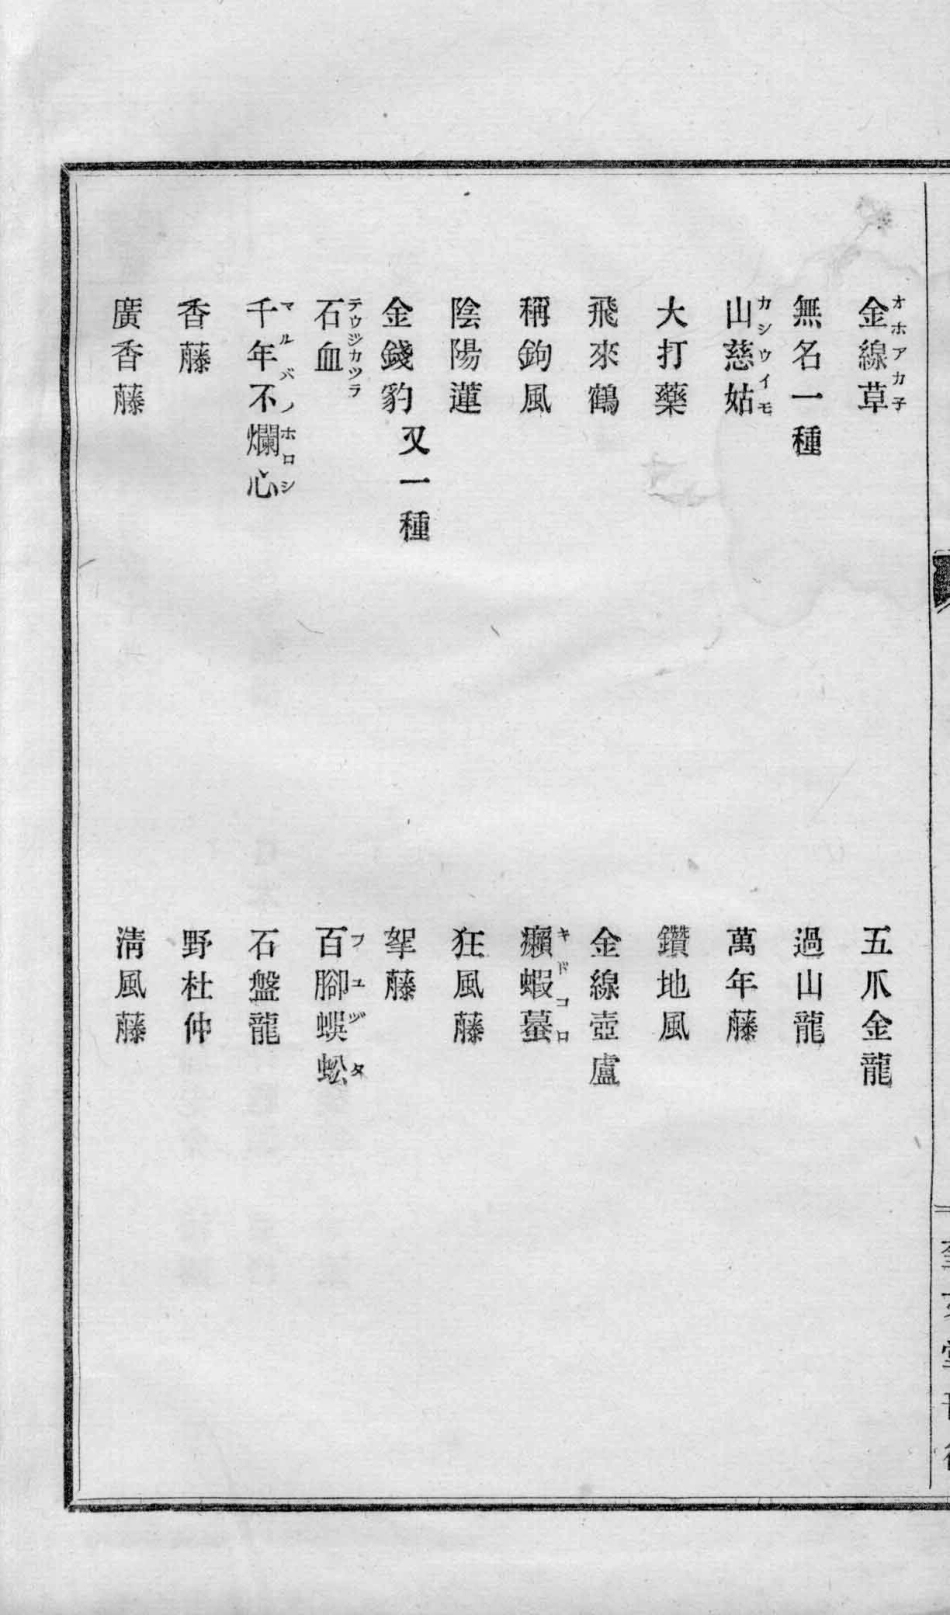 金線草
オホアカ子
五爪金龍
無名一種
過山龍
山慈姑
カシウイモ
萬年藤
大打藥
鑽地風
飛來鶴
金線壺盧
稱鉤風
癩蝦蟇
キドコロ
陰陽蓮
狂風藤
金錢豹又一種
拏藤
石血
テウジカツラ
百腳蜈蚣
フユヅタ
千年不爛心
マルバノホロシ
石盤龍
香藤
野杜仲
廣香藤
清風藤